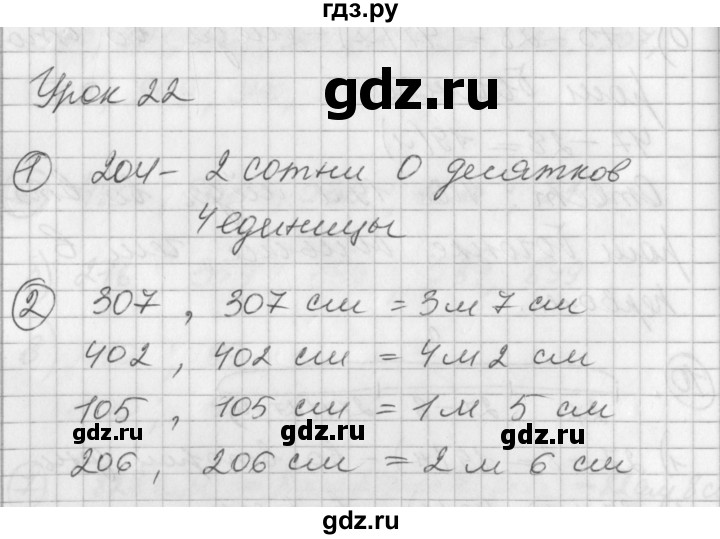 гдз.ру
Урок 22
gdz.ru
① 204 - 2 сотни 0 десятков
4 единицы
② 307, 307 см = 3 м 7 см
402, 402 см = 4 м 2 см
105, 105 см = 1 м 5 см
gdz.ru gdz.ru gdz.ru
206, 206 см = 2 м 6 см
gdz.ru